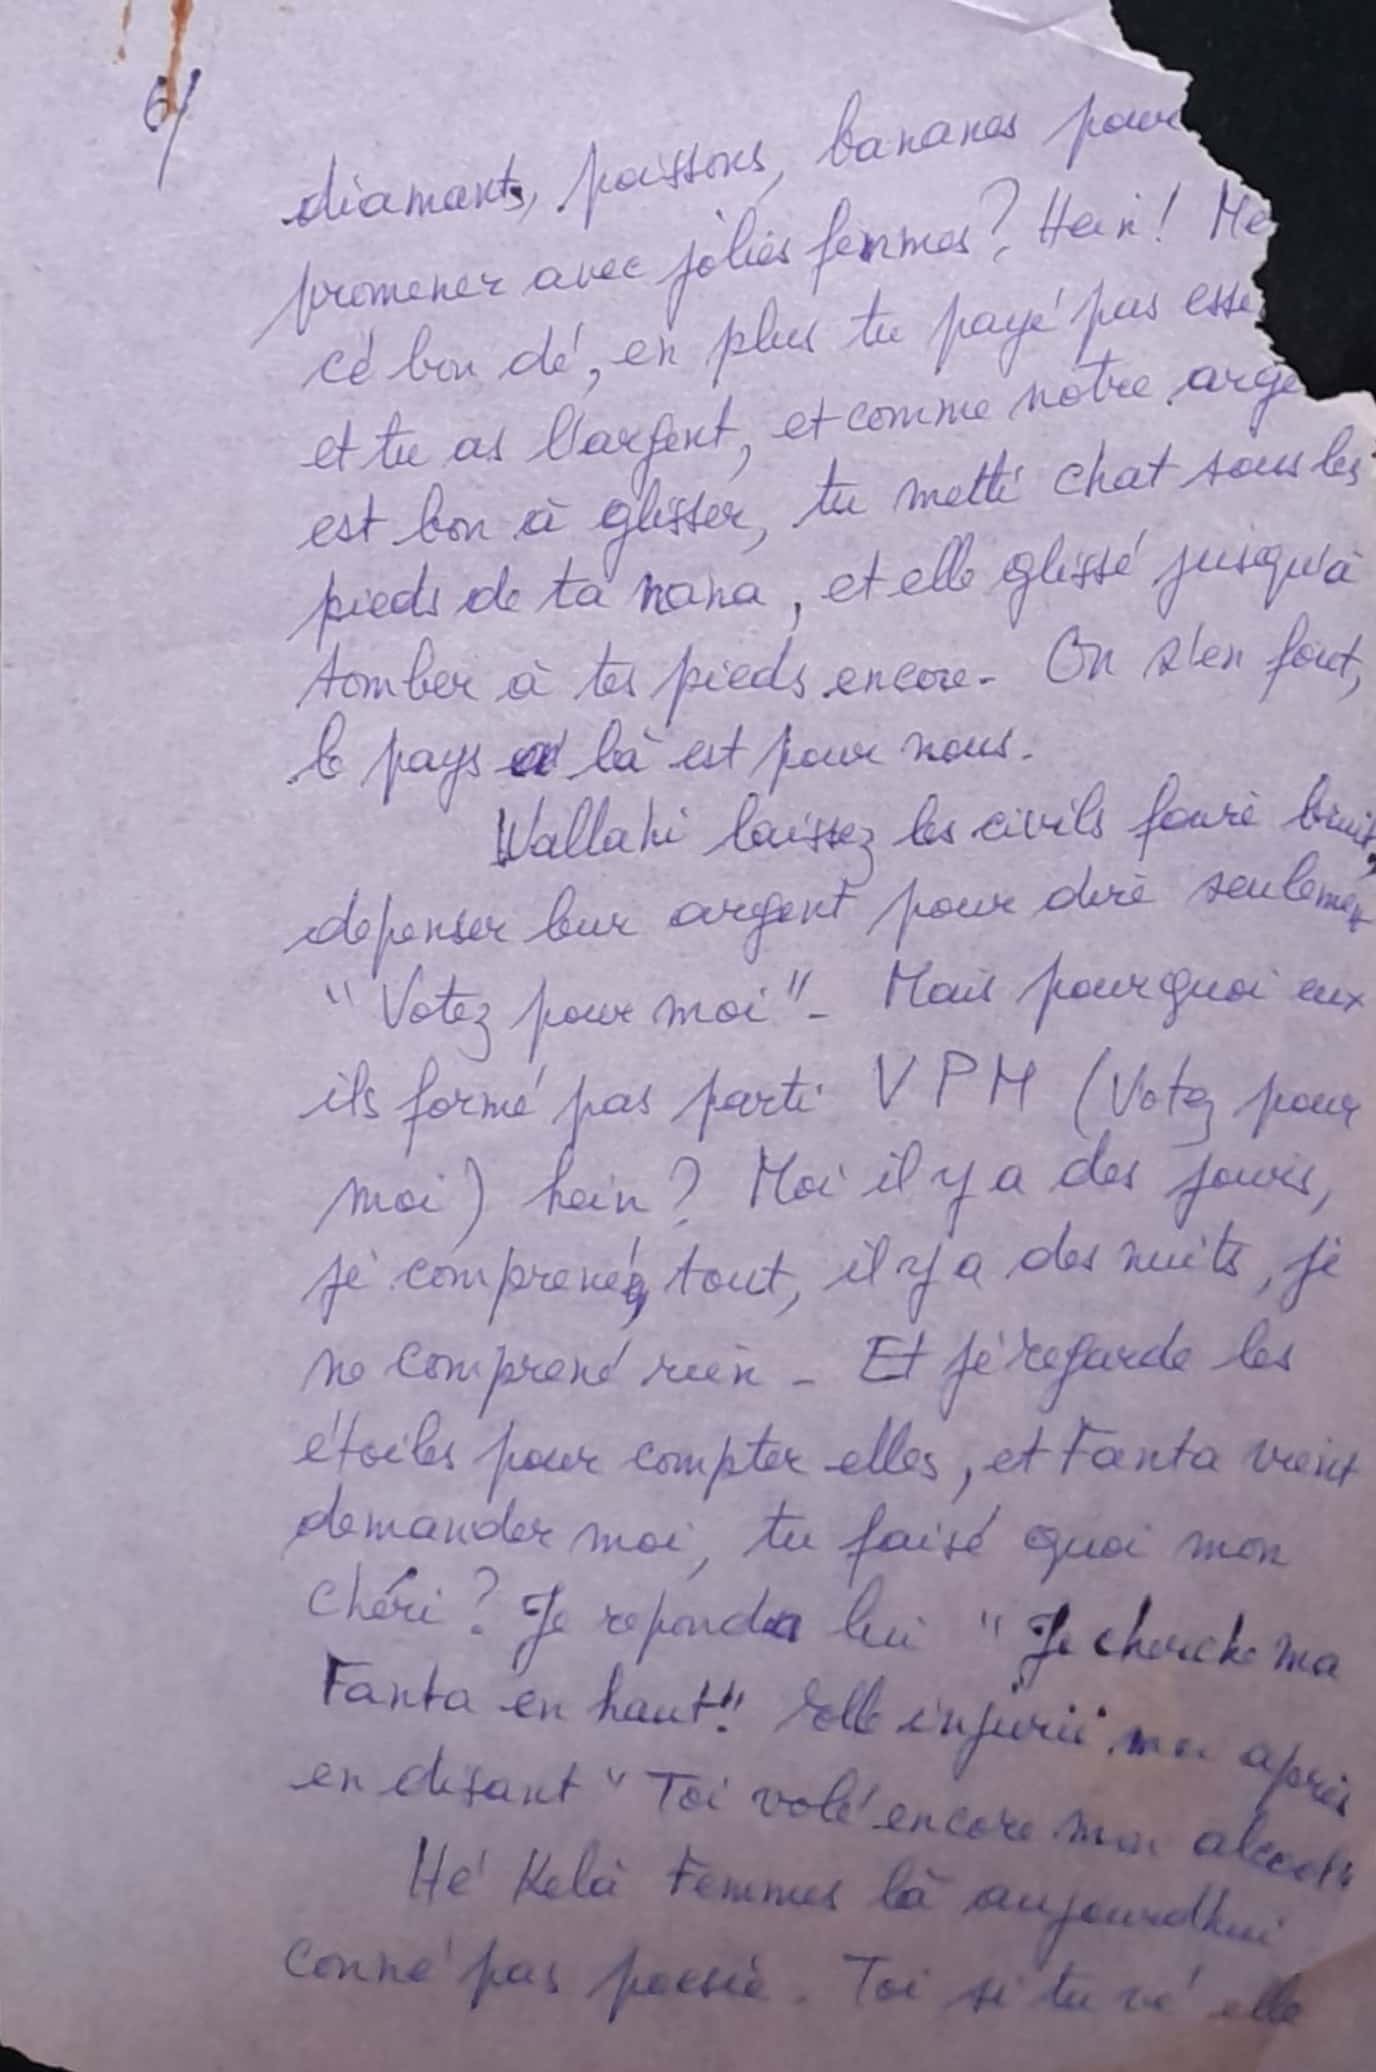 6/
diamants, poissons, bananes pour
promener avec jolies femmes? Hein! Me
cé bon dé, en plus tu payé pas esse
et tu as l'argent, et comme notre arge
est bon à glisser, tu metté chat sous les
pieds de ta nana, et elle glissé jusqu'à
tomber à tes pieds encore - On s'en fout,
le pays là est pour nous.
Wallahi laissez les civils fouré bruit,
depenser leur argent pour diré seulemen
"Votez pour moi" - Mais pourquoi eux
ils formé pas parti VPM (Votez pour
moi) hein? Moi il y a des jours,
jé comprené tout, il y a des nuits, jé
ne comprené rien - Et jé regarde les
étoiles pour compter elles, et Fanta vient
demander moi, tu faisé quoi mon
chéri? Je reponda lui "Je cherche ma
Fanta en haut!" Elle injurié moi après
en disant "Toi volé encore mon alcool"
Hé Kéla Femmes là aujourdhui
conné pas poesie. Toi si tu vé elle